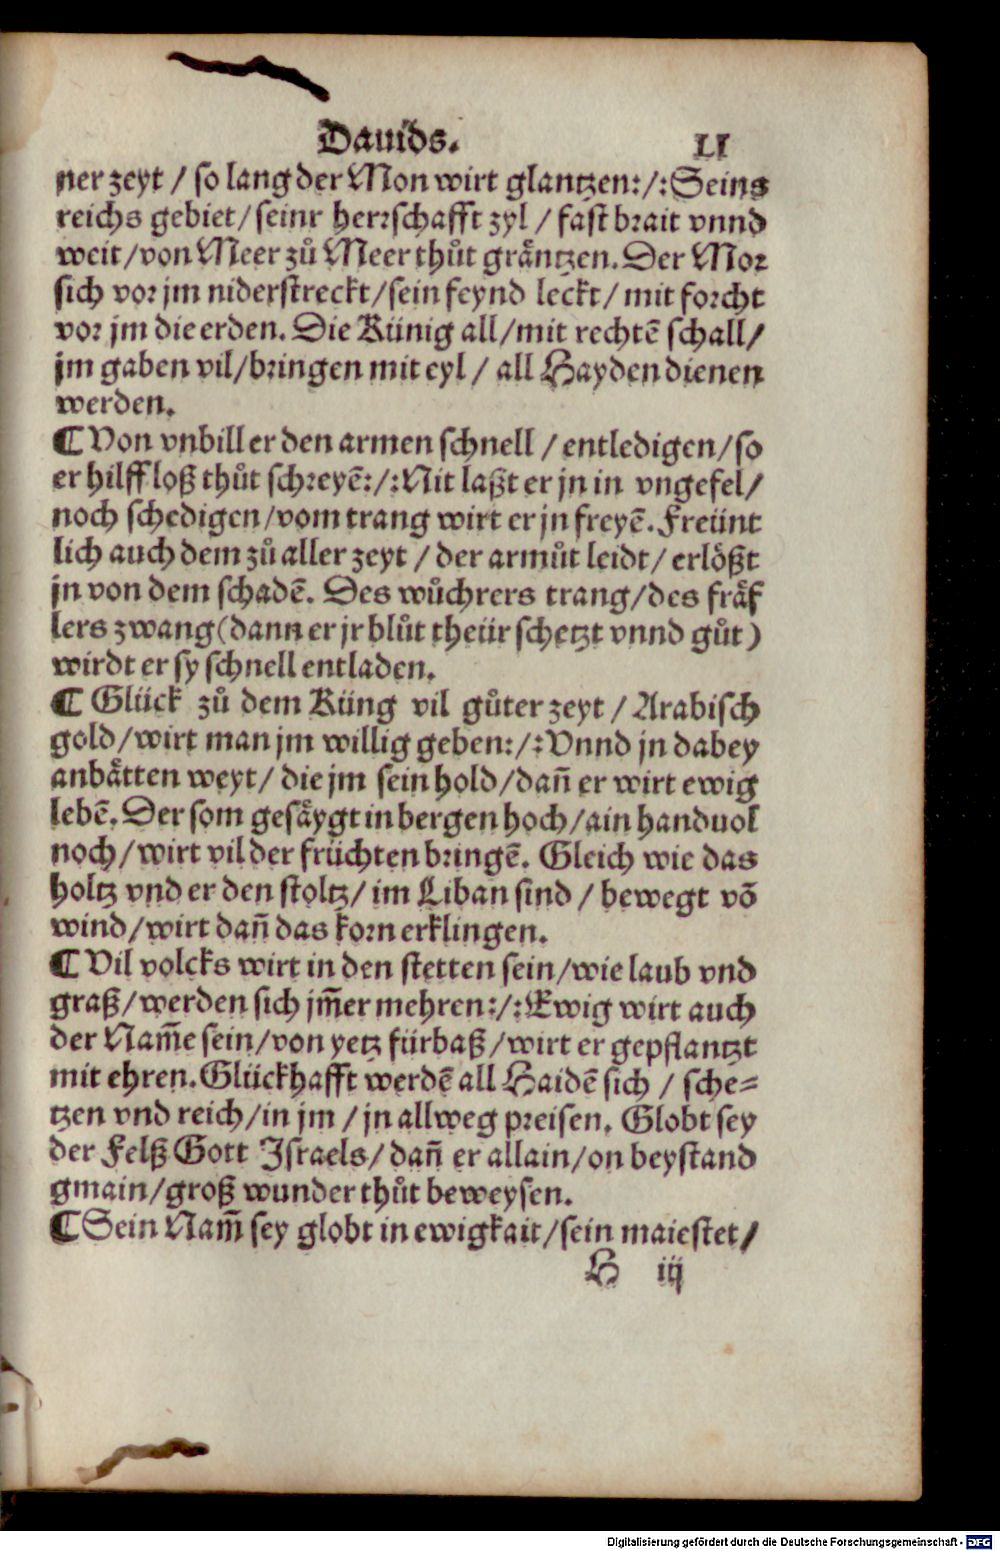 Dauids. LI
ner zeyt / so lang der Mon wirt glantzen:/:Seins
reichs gebiet/seinr herrschafft zyl / fast brait vnnd
weit/von Meer zů Meer thůt gräntzen. Der Mor
sich vor jm niderstreckt/sein feynd leckt/ mit forcht
vor jm die erden. Die Künig all/mit rechtē schall/
jm gaben vil/bringen mit eyl / all Hayden dienen
werden.
¶ Von vnbill er den armen schnell / entledigen/so
er hilff loß thůt schreyē:/:Nit laßt er jn in vngefel/
noch schedigen/vom trang wirt er jn freyē. Freünt
lich auch dem zů aller zeyt / der armůt leidt/ erlößt
jn von dem schadē. Des wůchrers trang/des fräf
lers zwang(dann er jr blůt theür schetzt vnnd gůt)
wirdt er sy schnell entladen.
¶ Glück zů dem Küng vil gůter zeyt / Arabisch
gold/wirt man jm willig geben:/:Vnnd jn dabey
anbätten weyt/ die jm sein hold/dañ er wirt ewig
lebē. Der som gesäygt in bergen hoch/ain handuol
noch/wirt vil der früchten bringē. Gleich wie das
holtz vnd er den stoltz/ im Liban sind / bewegt vō
wind/wirt dañ das korn erklingen.
¶ Vil volcks wirt in den stetten sein/wie laub vnd
graß/werden sich jm̄er mehren:/:Ewig wirt auch
der Nam̄e sein/von yetz fürbaß/wirt er gepflantzt
mit ehren. Glückhafft werdē all Haidē sich / sche⸗
tzen vnd reich/in jm / jn allweg preisen. Globt sey
der Felß Gott Israels/dañ er allain/on beystand
gmain/groß wunder thůt beweysen.
¶ Sein Nam̄ sey globt in ewigkait/sein maiestet/
H iij
Digitalisierung gefördert durch die Deutsche Forschungsgemeinschaft - DFG